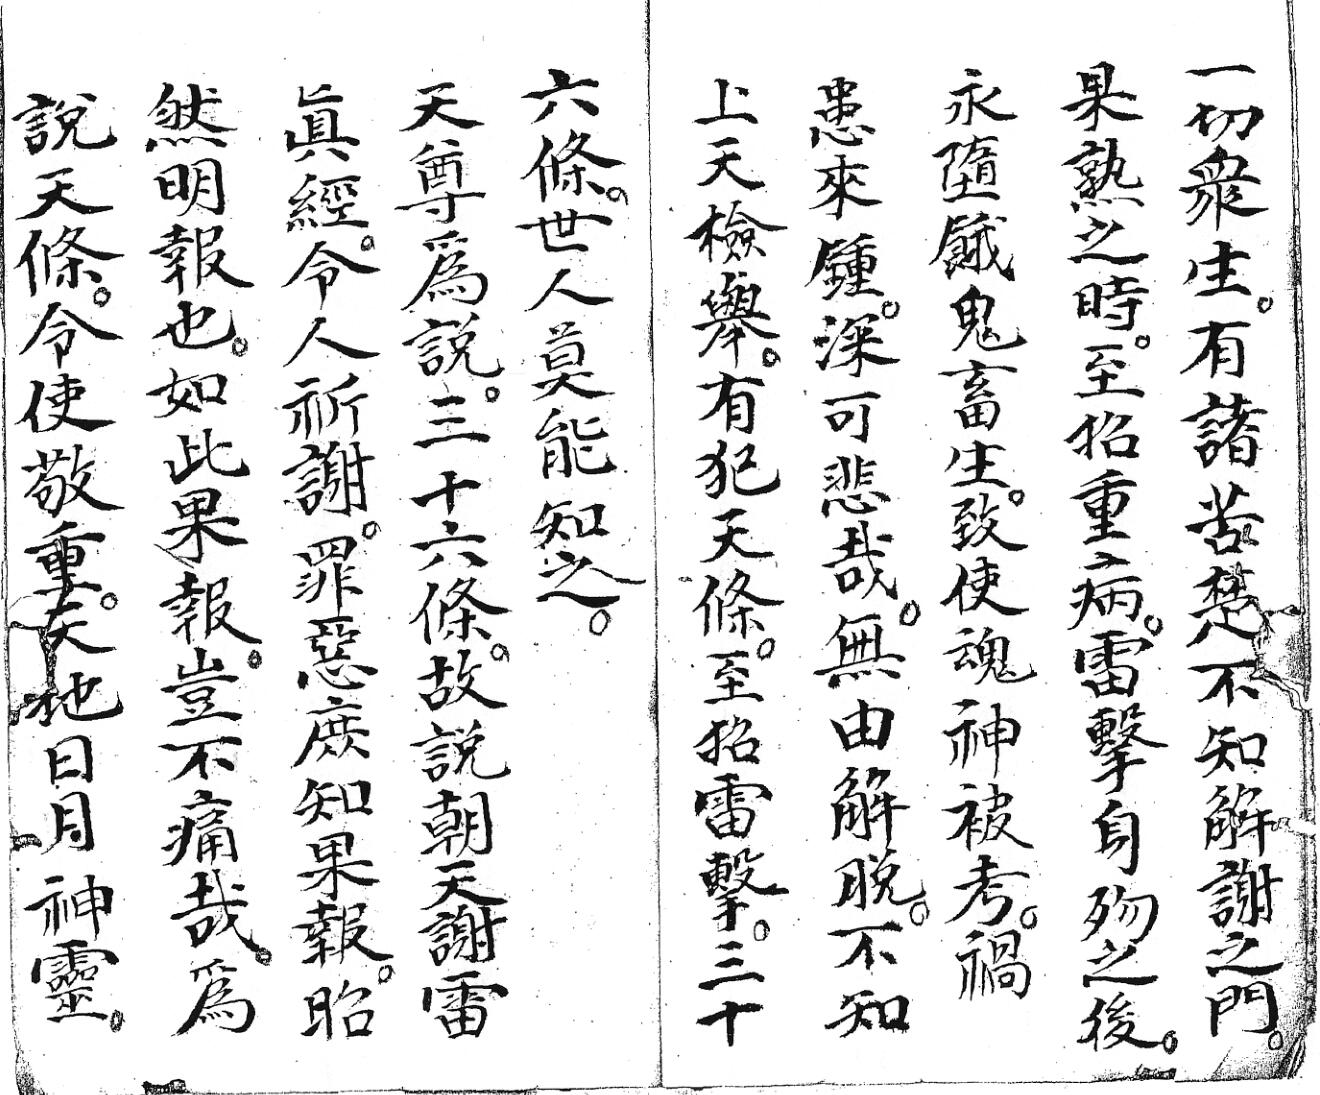 一切衆生。有諸苦楚不知解謝之門。
果熟之時。至招重病。雷擊身歿之後。
永墮餓鬼畜生。致使魂神被考。禍
患來鍾。深可悲哉。無由解脫。不知
上天檢舉。有犯天條。至招雷擊。三十
六條。世人莫能知之。
天尊爲說。三十六條。故說朝天謝雷
眞經。令人祈謝。罪惡庶知果報。昭
然明報也。如此果報。豈不痛哉。爲
說天條。令使敬重。天地日月神靈。